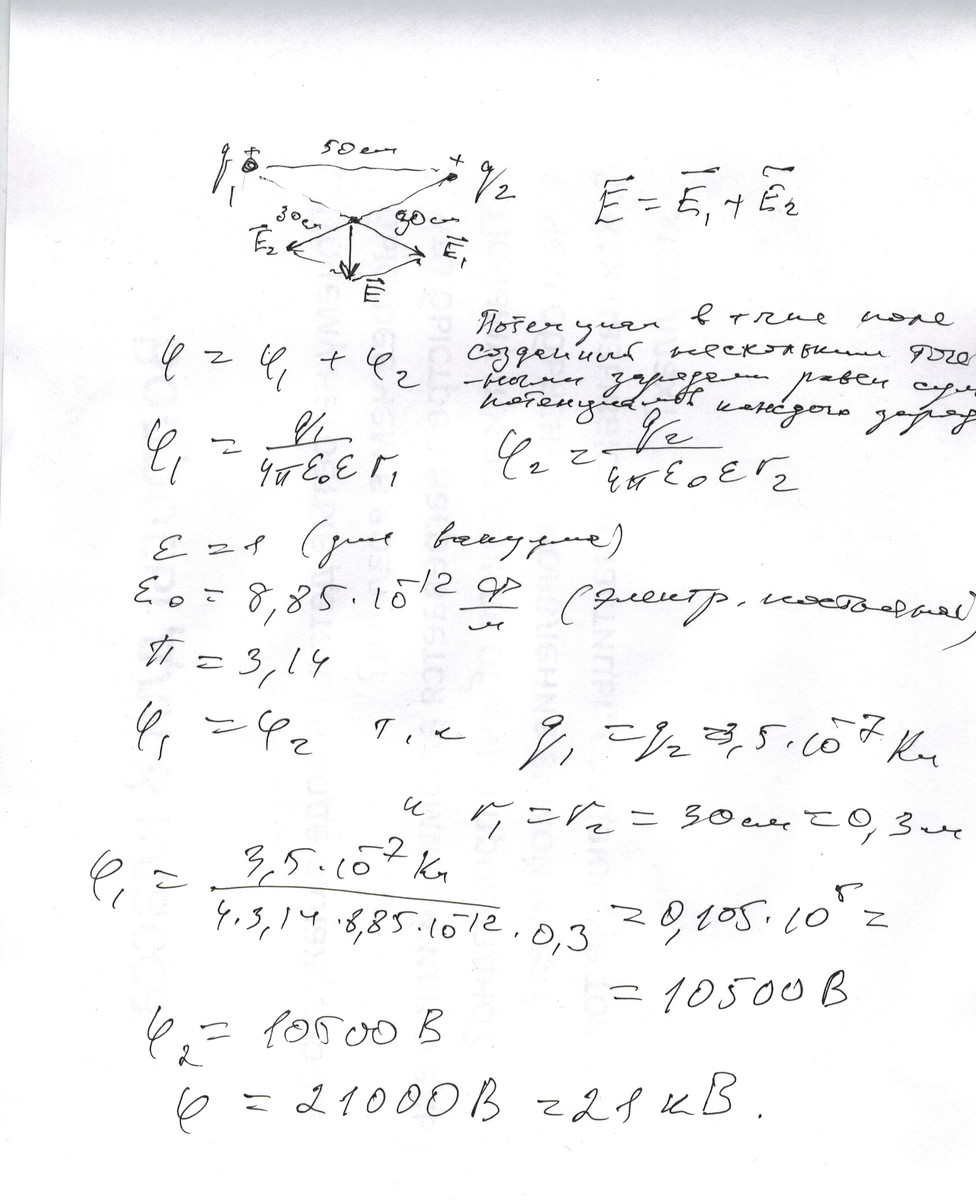 50 см
q₁ + + q₂
E⃗ = E⃗₁ + E⃗₂
30 см 30 см
E⃗₂ E⃗₁
E⃗
Потенциал в точке поле
φ = φ₁ + φ₂ созданный несколькими точе
-ными зарядами равен сум
потенциалов каждого заряд
φ₁ = q₁/4πε₀εr₁ φ₂ = q₂/4πε₀εr₂
ε = 1 (для вакуума)
ε₀ = 8,85·10⁻¹² Ф/м (электр. постоянная)
π = 3,14
φ₁ = φ₂ т.к q₁ = q₂ = 3,5·10⁻⁷ Кл
и r₁ = r₂ = 30 см = 0,3 м
φ₁ = 3,5·10⁻⁷ Кл/4·3,14·8,85·10⁻¹²·0,3 = 0,105·10⁵ =
= 10500 В
φ₂ = 10500 В
φ = 21000 В = 21 кВ.